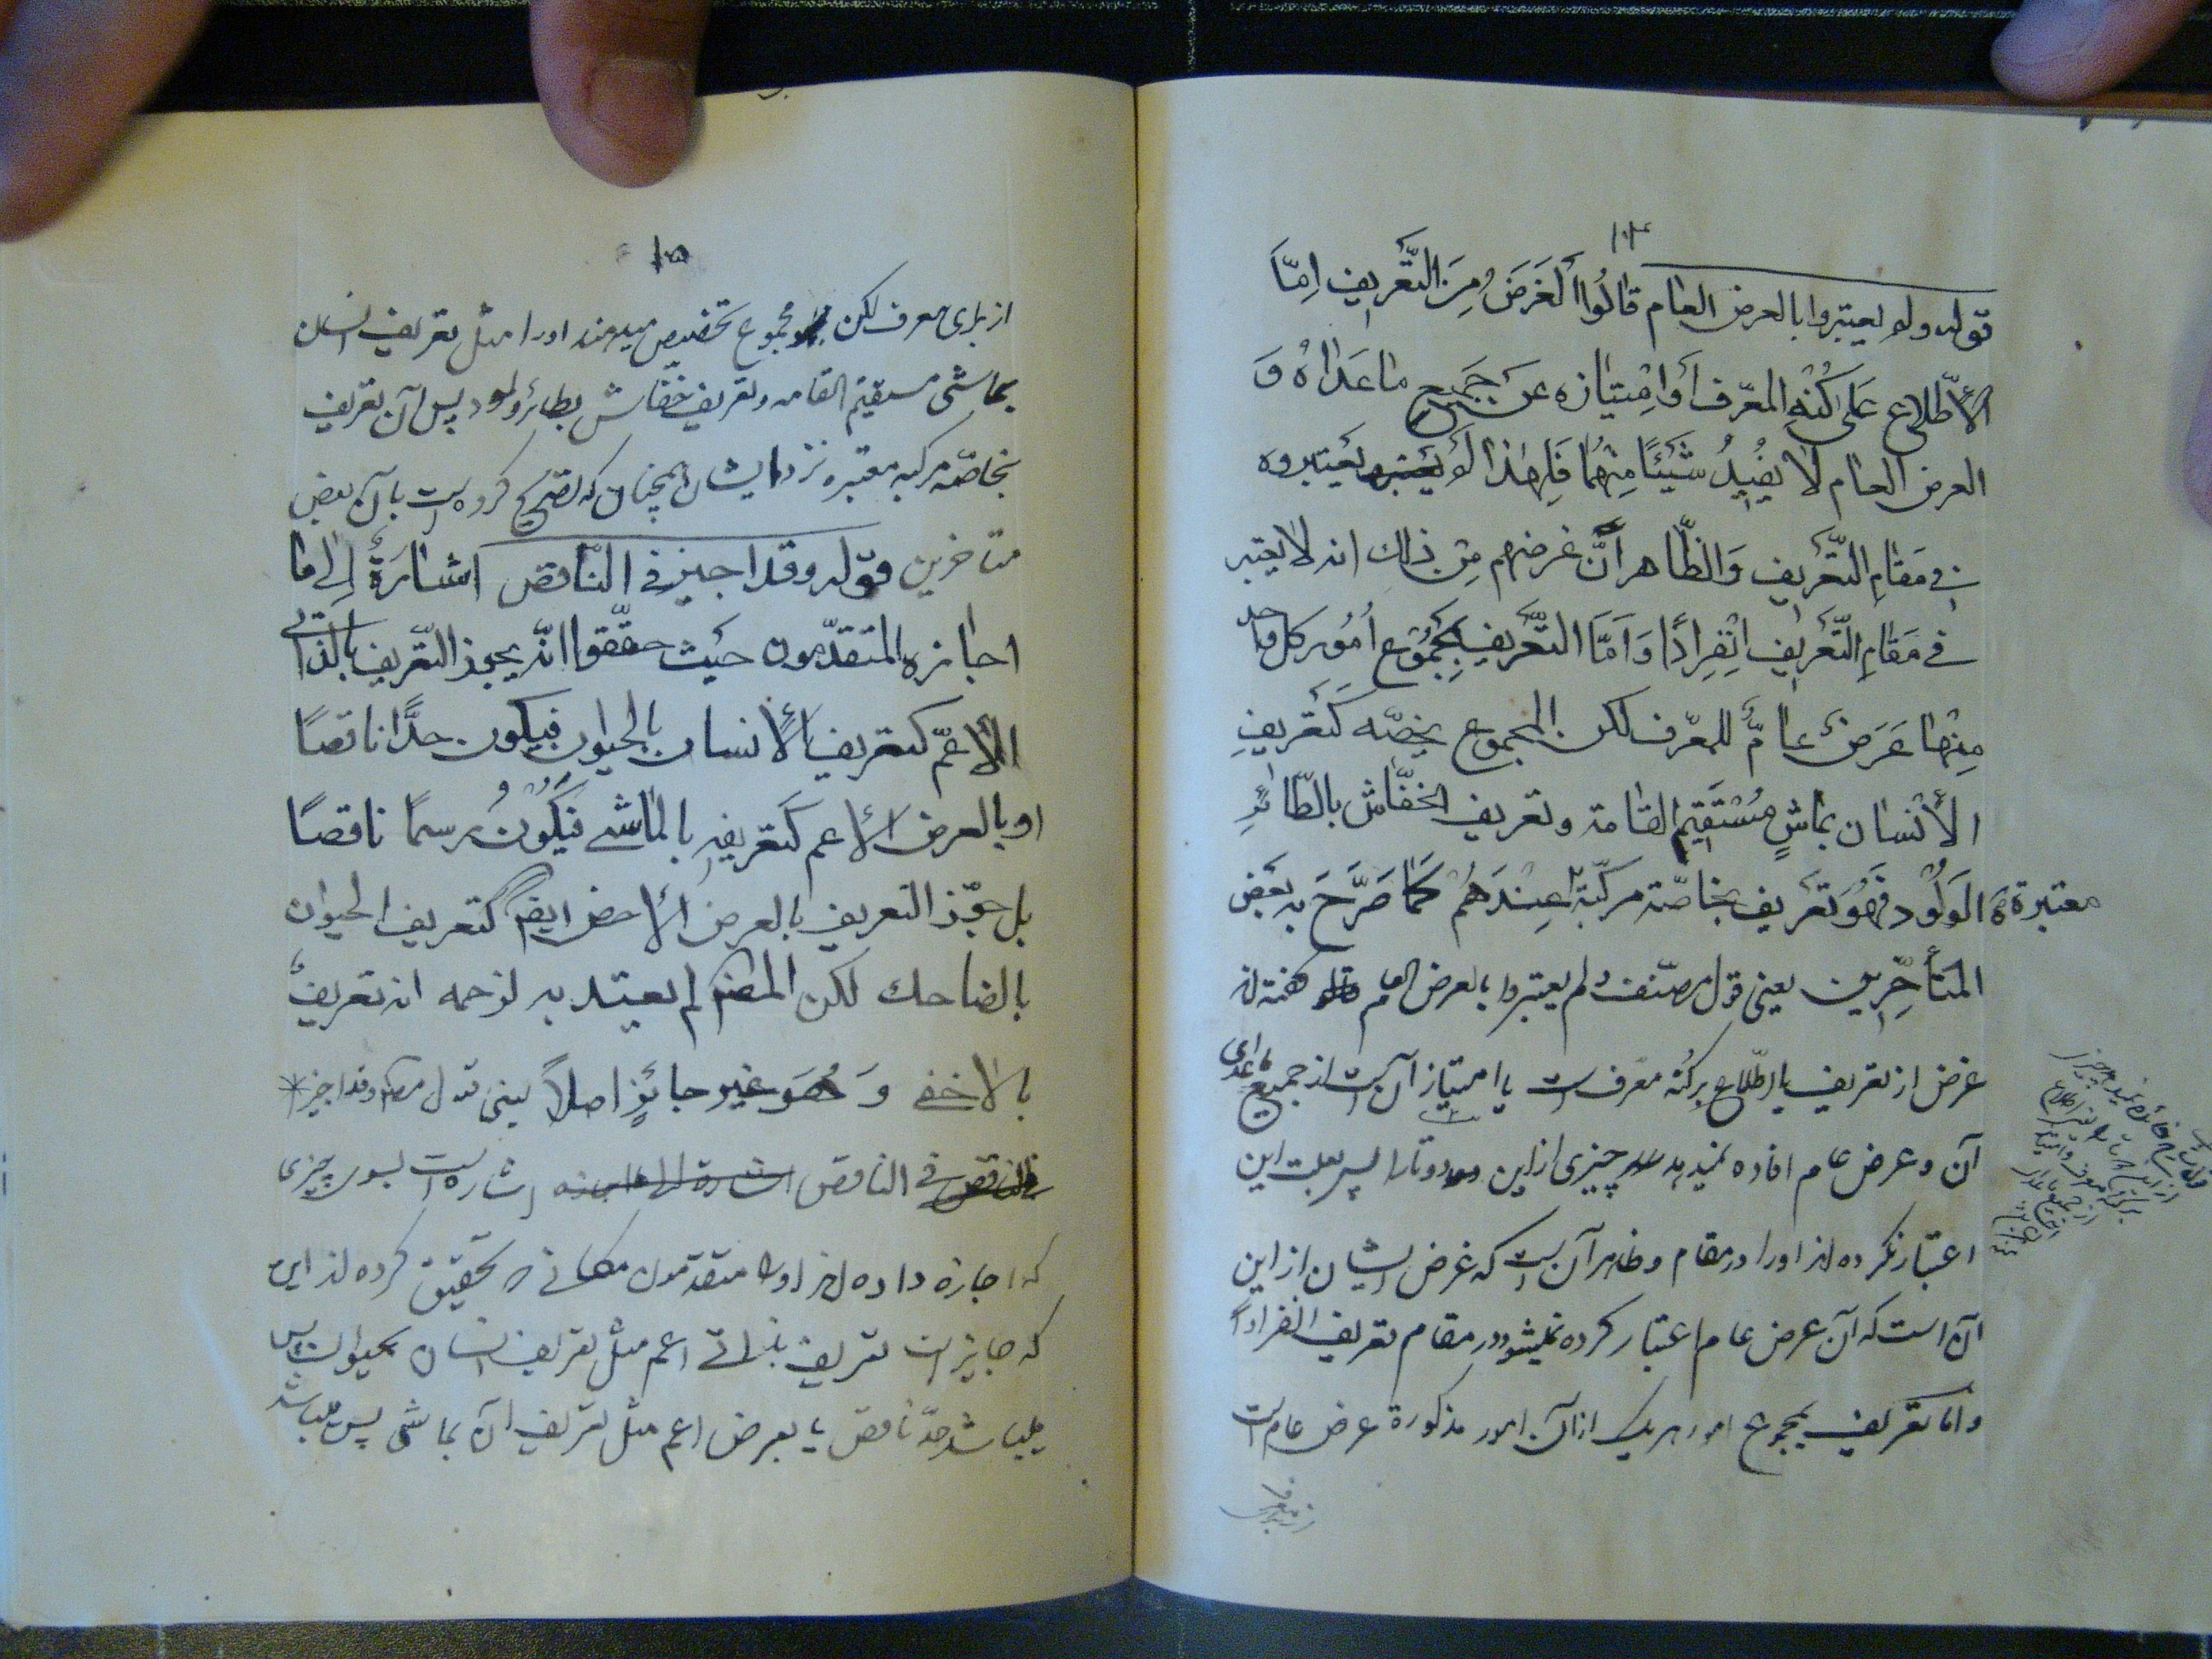 ۱۰۴
قوله ولم يعتبروا بالعرض العام قَالُوا اَلْغَرَضُ مِنَ التَّعْرِيفِ اِمَّا
الْاِطّلاع عَلى كُنْهِ المعّرف اَوْ اِمْتِيٰازه عَن جَميعِ مٰا عَدٰاهُ وَ
العرض العام لا يُفِيدُ شَيْئًا مِنْهُمٰا فَلِهٰذا لَمْ يعتبروه
في مَقٰامِ التَّعْريف وَالظّاهر اَنَّ غرضهم مِن ذلك انه لا يعتبر
في مَقٰامِ التَّعْريف اِنْفِرادًا وَاَمَّا التَّعْريف بِمَجْمُوعِ اُمُور كل واحد
مِنْهٰا عَرَضٌ عٰامٌّ للمعّرف لكن المجموع يخصّه كَتَعْريفِ
الْاَنْسٰان بمٰاشٍ مُسْتَقيمِ القٰامة وتعريف الخفّاش بالطّائرِ
الوَلُود فَهُوَ تَعْريف بخاصّة مركّبة عِنْدَهُمْ كَمٰا صَرَّحَ به بَعْض
معتبرة
المتأخّرين يعنى قول مصنّف ولم يعتبروا بالعرض العام گفته‌اند
غرض از تعريف يا اطّلاع بر كُنه معرف است يا امتياز آن است از جميع ما عداى
آن و عرض عام افاده نميدهد چيزى از اين دوتا را پس بعلت اين
اعتبار نكرده‌اند او را در مقام و ظاهر آن است كه غرض ايشان از اين
آن است كه آن عرض عام اعتبار كرده نميشود در مقام تعريف انفراداً
و اما تعريف بمجموع امور هر يك از آن امور مذكورة عرض عام است
۱۰۵
از براى معرف لكن مجموع تخصيص ميدهند او را مثل تعريف انسان
بماشى مستقيم القامه و تعريف خفاش بطائر ولود پس آن تعريف
بخاصّه مركبه معتبره نزد ايشان همچنان كه تصريح كرده است بآن بعض
متاخرين قوله وقد اجيز فى النّاقص اشٰارَةٌ اِلٰى مٰا
اجٰازه المتقدّمون حَيْث حقّقوا انّه يجوز التّعريف بالذاتى
الْاَعمّ كتعريف الْاَنسان بالحيوان فيكون حدًّا ناقصًا
او بالعرض الْاعم كتعريفه بالمٰاشى فَيَكُونُ رسمًا ناقصًا
بل جوّز التعريف بالعرض الْاخص ايضا كتعريف الحيوان
بالضاحك لكن المصنف لم يعتد به لزعمه انه تعريف
بالاخفى وَهُوَ غير جائز اصلاً يعنى قول مصنف وقد اجيز
فى الناقص اشاره است بسوى چيزى
كه اجازه داده‌اند او را متقدمون مكانى كه تحقيق كرده‌اند اين
كه جايز است تعريف بذاتى اعم مثل تعريف انسان بحيوان پس
ميباشد حدّ ناقص يا بعرض اعم مثل تعريف آن بماشى پس ميباشد